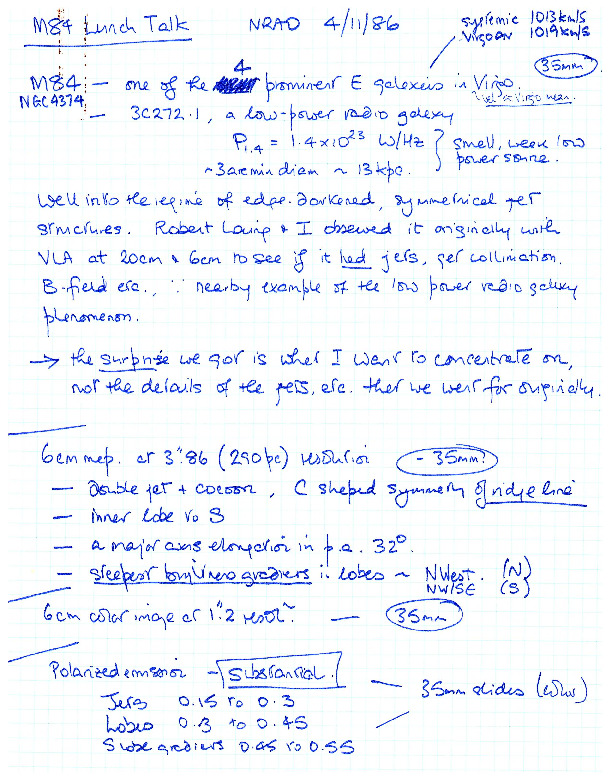 M84 Lunch Talk NRAO 4/11/86
systemic 1013 km/s
Virgo 1019 km/s
35mm
M84 — one of the 4 prominent E galaxies in Virgo
NGC4374
vel ≈ Virgo mean
— 3C272.1, a low-power radio galaxy
P1.4 = 1.4 x 10^23 W/Hz } small, weak low
~3 arcmin diam ~ 13 kpc. power source.
Well into the regime of edge-darkened, symmetrical jet
structures. Robert Laing & I observed it originally with
VLA at 20cm & 6cm to see if it had jets, jet collimation,
B-field etc., ∵ nearby example of the low power radio galaxy
phenomenon.
→ the surprise we got is what I want to concentrate on,
not the details of the jets, etc. that we went for originally.
6cm map. at 3"86 (290pc) resolution - 35mm
— double jet + cocoon, C shaped symmetry of ridge line
— inner lobe to S
— a major axis elongation in p.a. 32°.
— steepest brightness gradients in lobes ~ NWest. (N)
NW/SE (S)
6cm color image at 1"2 resol~. — 35mm
Polarized emission — substantial.
Jets 0.15 to 0.3
Lobes 0.3 to 0.45
S lobe gradient 0.45 to 0.55
— 35mm slides (color)